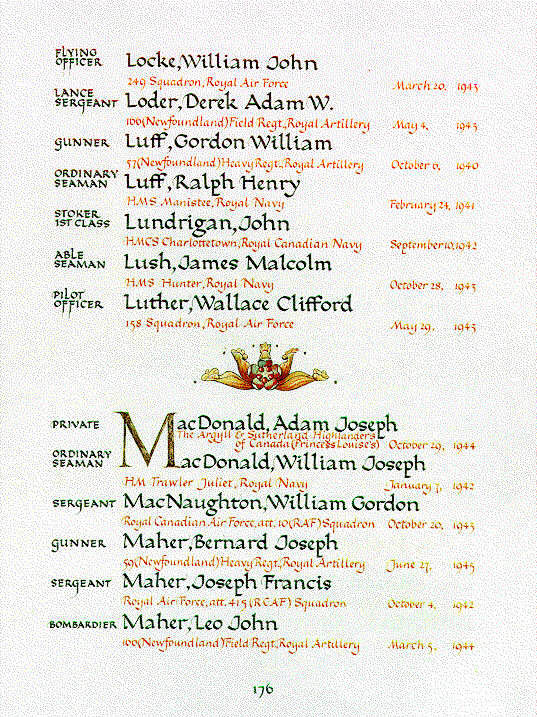 FLYING OFFICER Locke, William John
249 Squadron, Royal Air Force March 20, 1943
LANCE SERGEANT Loder, Derek Adam W.
166(Newfoundland)Field Regt., Royal Artillery May 4, 1943
GUNNER Luff, Gordon William
57(Newfoundland)Heavy Regt., Royal Artillery October 6, 1940
ORDINARY SEAMAN Luff, Ralph Henry
HMS Manistee, Royal Navy February 24, 1941
STOKER 1ST CLASS Lundrigan, John
HMCS Charlottetown, Royal Canadian Navy September 10, 1942
ABLE SEAMAN Lush, James Malcolm
HMS Hunter, Royal Navy October 28, 1943
PILOT OFFICER Luther, Wallace Clifford
158 Squadron, Royal Air Force May 29, 1943
PRIVATE MacDonald, Adam Joseph
The Argyll & Sutherland Highlanders
of Canada (Princess Louise's) October 29, 1944
ORDINARY SEAMAN MacDonald, William Joseph
HM Trawler Juliet, Royal Navy January 7, 1942
SERGEANT MacNaughton, William Gordon
Royal Canadian Air Force, att. 10(RAF) Squadron October 20, 1943
GUNNER Maher, Bernard Joseph
59(Newfoundland)Heavy Regt., Royal Artillery June 27, 1945
SERGEANT Maher, Joseph Francis
Royal Air Force, att. 415 (RCAF) Squadron October 4, 1942
BOMBARDIER Maher, Leo John
166(Newfoundland)Field Regt., Royal Artillery March 5, 1944
176